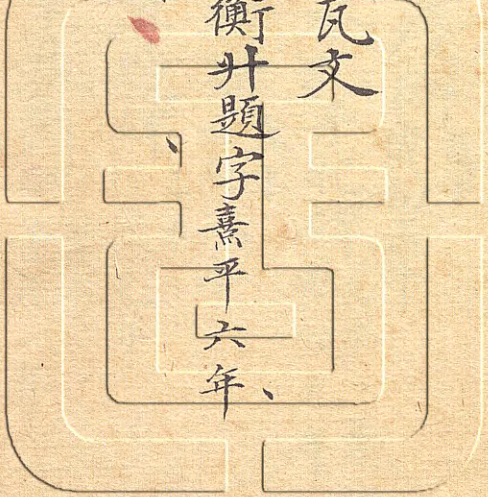 瓦文
衡升題字熹平六年、